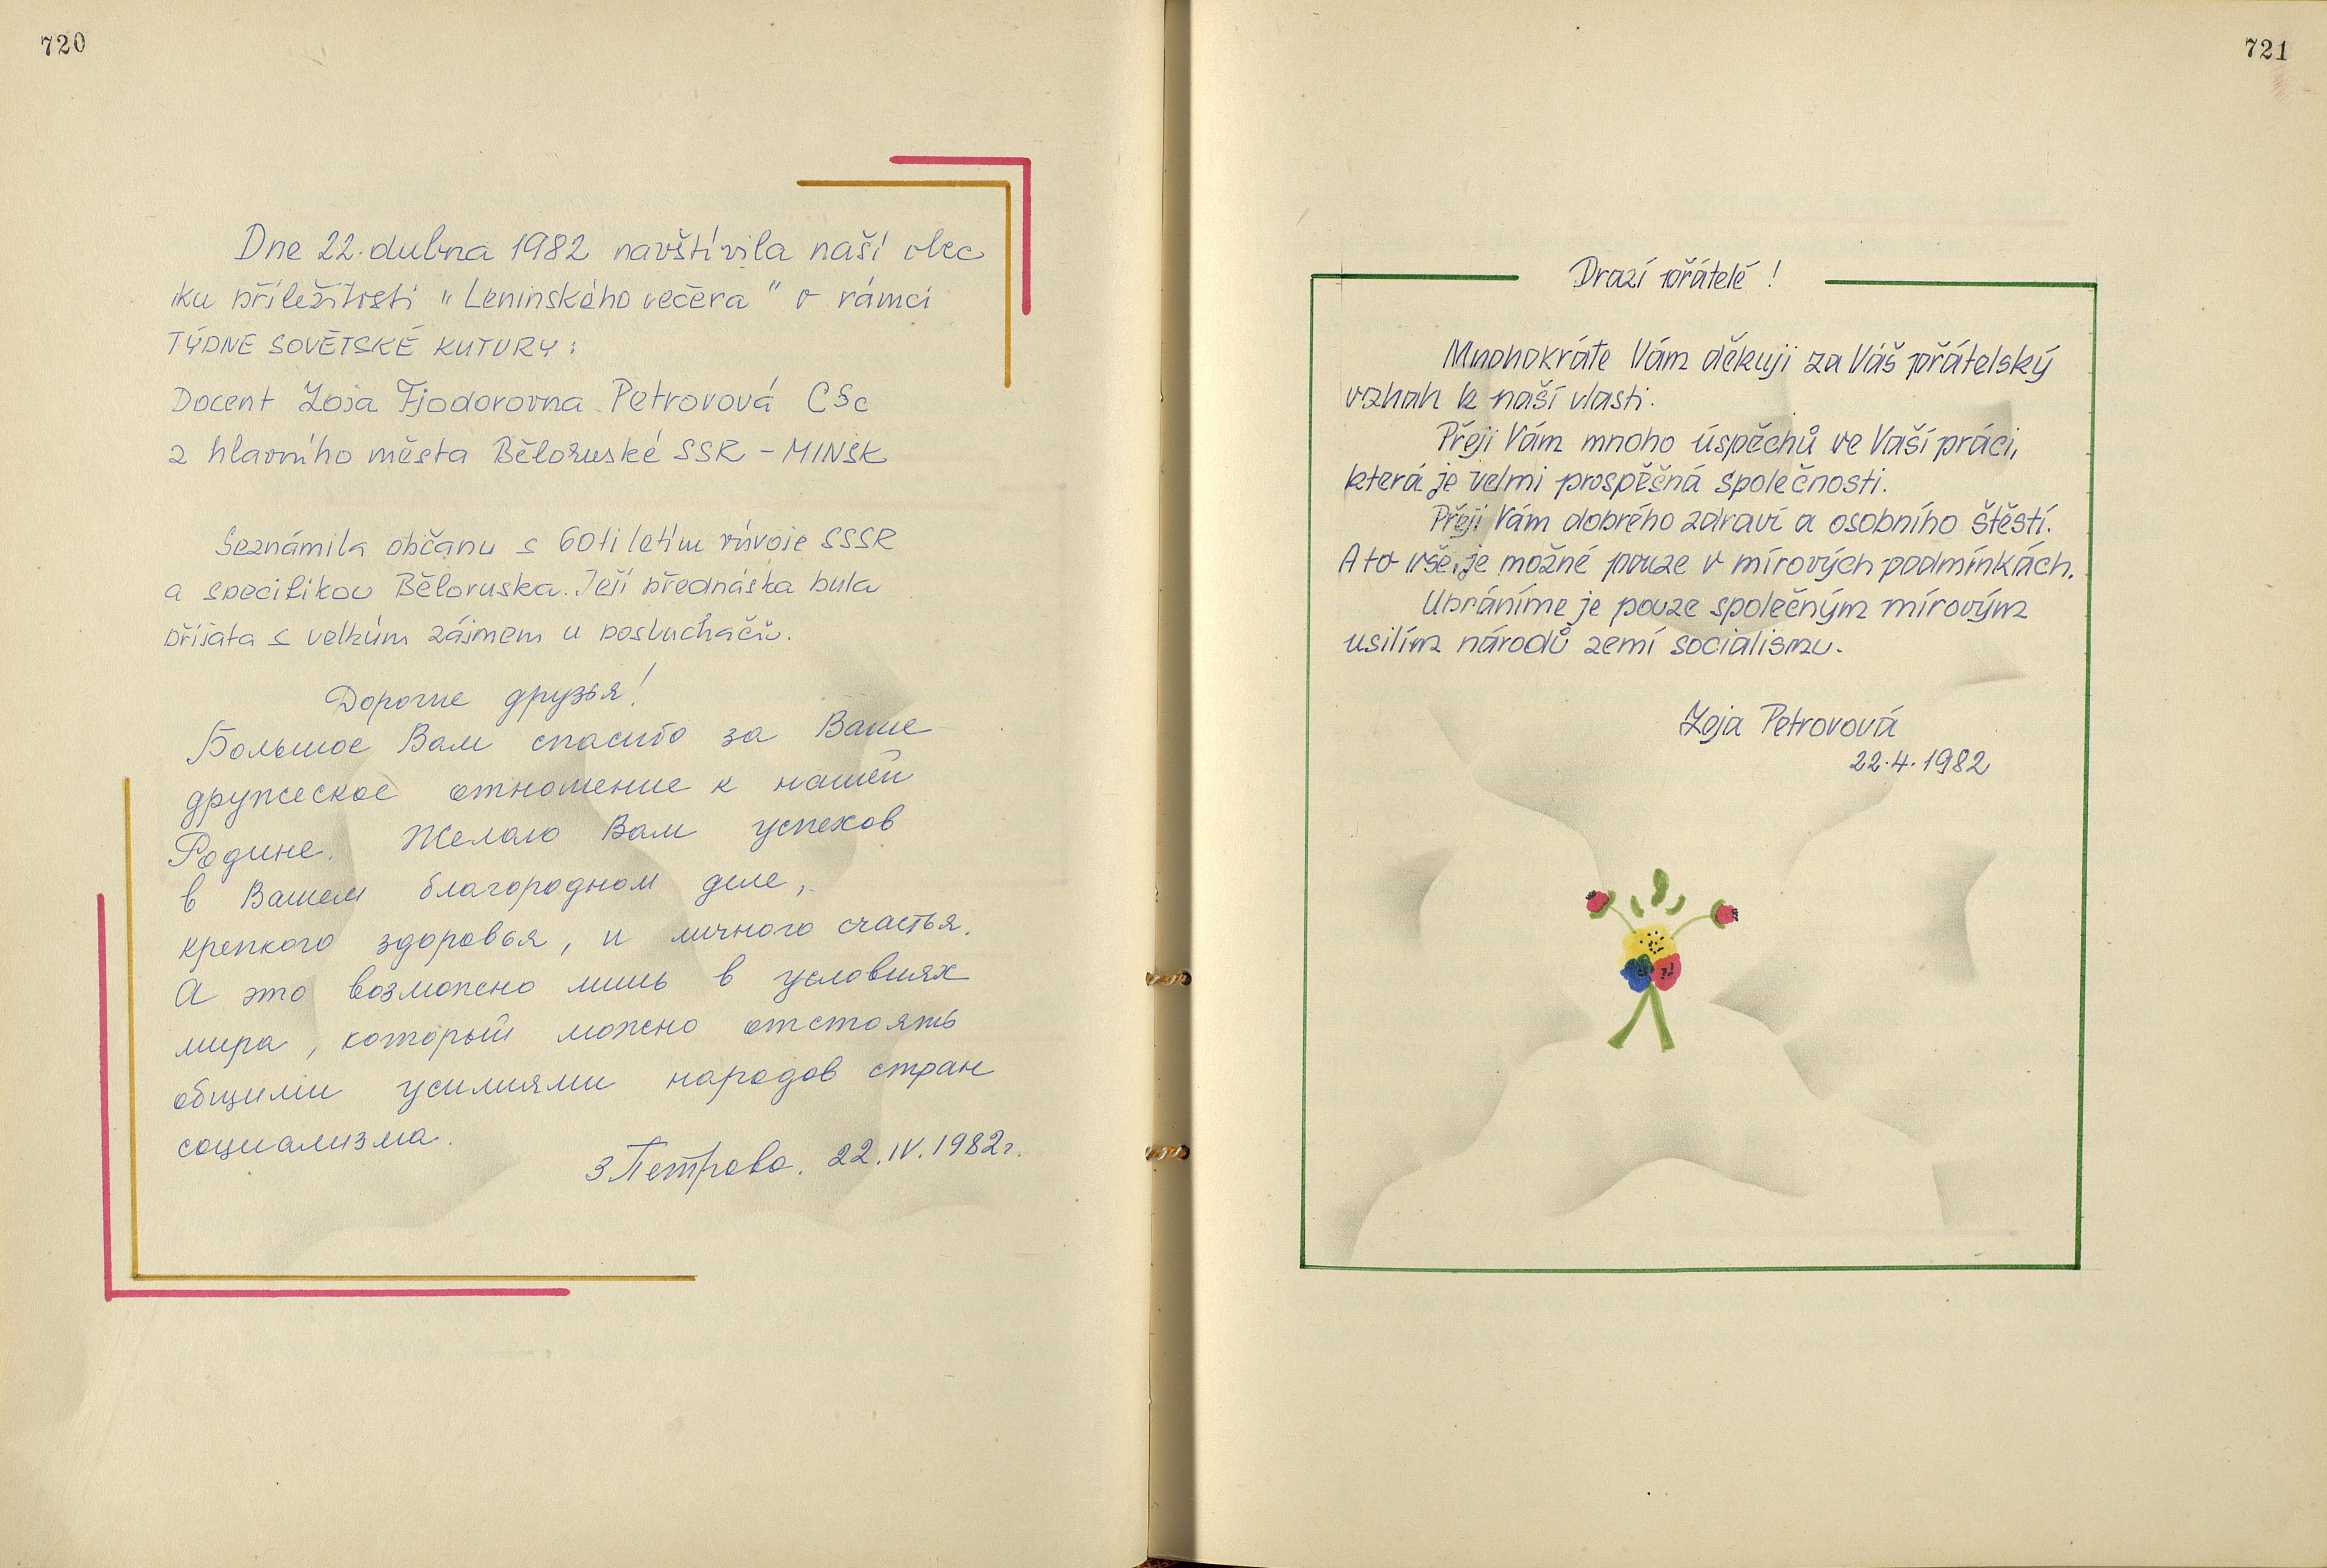 720
Dne 22. dubna 1982 navštívila naší obec
ku příležitosti "Leninského večera" v rámci
TÝDNE SOVĚTSKÉ KUTURY:
Docent Zoja Fjodorovna Petrovová CSc
z hlavního města Běloruské SSR - MINSK
Seznámila občany s 60ti letým vývoje SSSR
a specifikou Běloruska. Její přednáška byla
přijata s velkým zájmem u posluchačů.
Дорогие друзья!
Большое Вам спасибо за Ваше
дружеское отношение к нашей
Родине. Желаю Вам успехов
в Вашем благородном деле,
крепкого здоровья, и личного счастья.
А это возможно лишь в условиях
мира, который можно отстоять
общими усилиями народов стран
социализма.
З Петрова. 22.IV.1982г.
721
Drazí přátelé!
Mnohokráte Vám děkuji za Váš přátelský
vzhah k naší vlasti.
Přeji Vám mnoho úspěchů ve Vaší práci,
která je velmi prospěšná společnosti.
Přeji Vám dobrého zdraví a osobního štěstí.
A to vše, je možné pouze v mírových podmínkách.
Ubráníme je pouze společným mírovým
usilím národů zemí socialismu.
Zoja Petrovová
22.4.1982